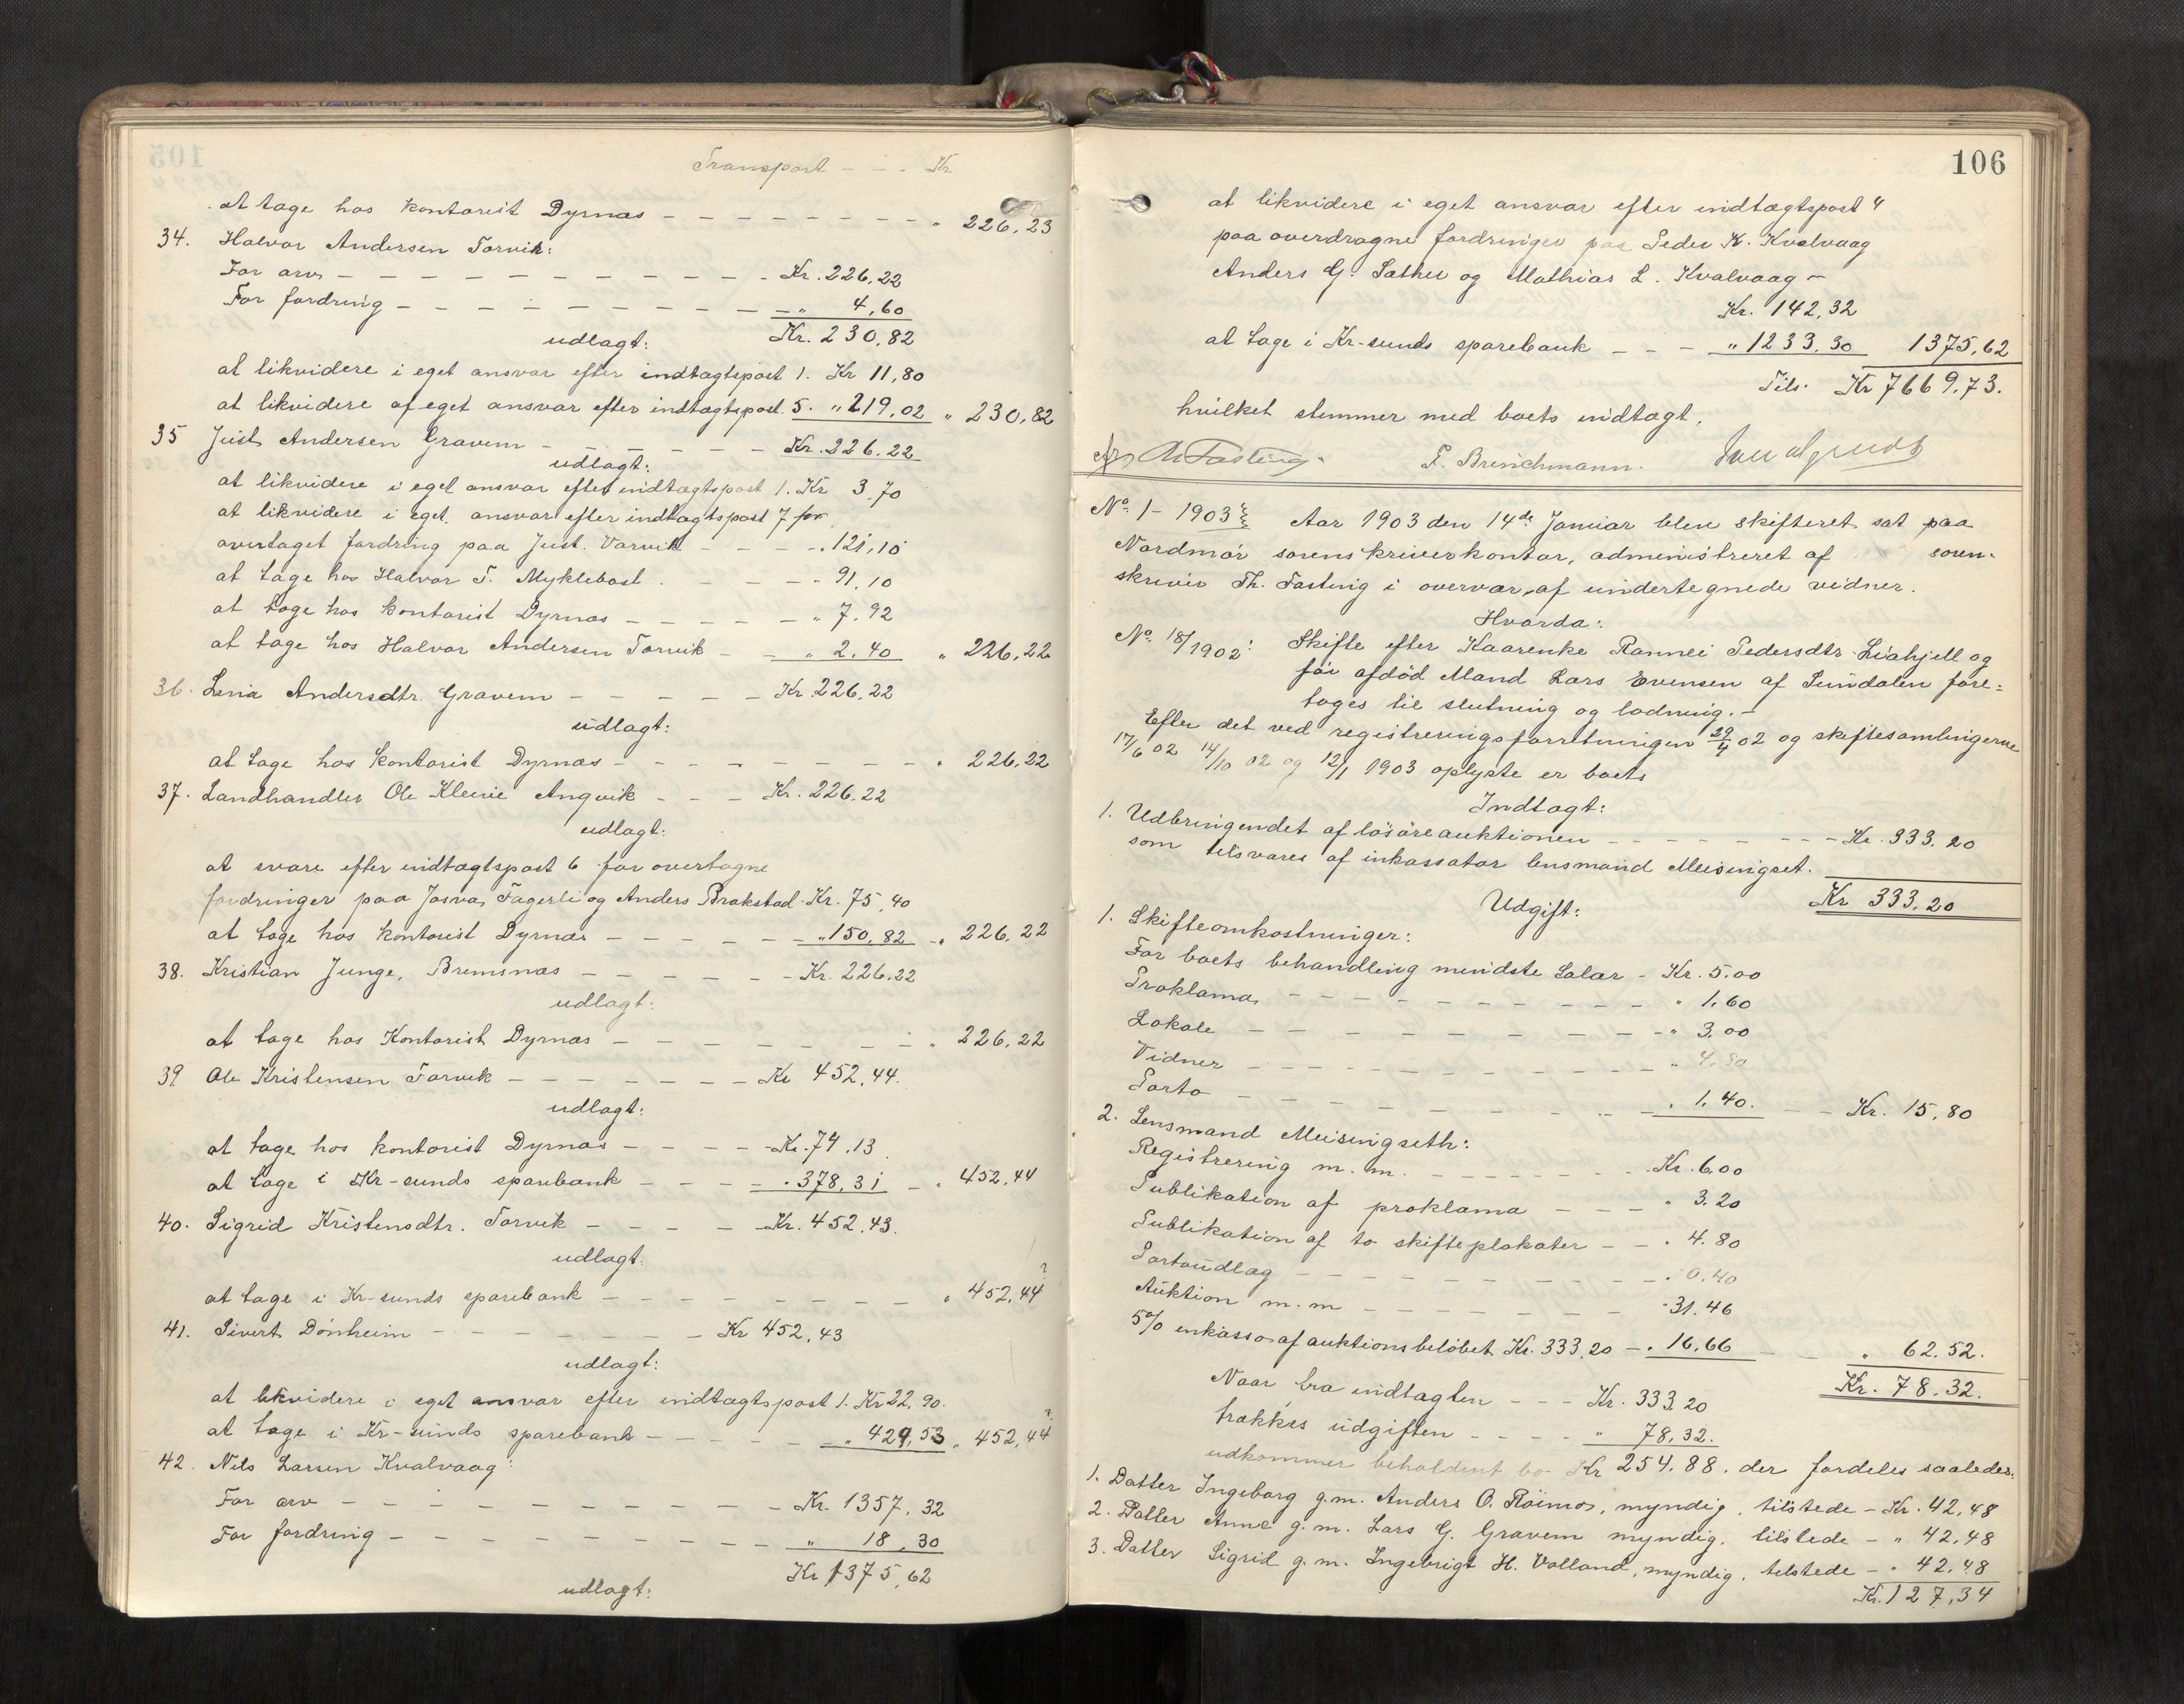 Transport - - - Kr
at tage hos kontorist Dyrnæs - - - - - - - - - " 226,23
34. Halvor Andersen Torvik:
For arv - - - - - - - - - - - Kr. 226,22
For fordring - - - - - - - - - " 4,60
udlagt: Kr. 230,82
at likvidere i eget ansvar efter indtægtspost 1. Kr 11,80
at likvidere af eget ansvar efter indtægtspost 5. " 219,02 " 230,82
35 Just Andersen Gravem - - - - - - Kr. 226.22
udlagt:
at likvidere i eget ansvar efter indtægtspost 1. Kr 3,70
at likvidere i eget ansvar efter indtægtspost 7 for
overtaget fordring paa Just. Varvik - - - - " 121,10
at tage hos Halvor T. Myklebost . - - - - " 91,10
at tage hos kontorist Dyrnæs - - - - - " 7.92
at tage hos Halvor Andersen Torvik - - " 2.40 " 226,22
36. Lina Andersdtr. Gravem - - - - - Kr. 226,22
udlagt:
at tage hos kontorist Dyrnæs - - - - - - - - " 226,22
37. Landhandler Ole Kleive Angvik - - - Kr. 226.22
udlagt:
at svare efter indtægtspost 6 for overtagne
fordringer paa Josva Fagerli og Anders Brakstad. Kr. 75,40
at tage hos kontorist Dyrnæs - - - - - - " 150,82 - " 226,22
38. Kristian Junge, Bremsnæs - - - - - - Kr. 226.22
udlagt:
at tage hos Kontorist Dyrnæs - - - - - - - - " 226,22
39 Ole Kristensen Torvik - - - - - - - Kr 452,44.
udlagt:
at tage hos kontorist Dyrnæs - - - - - Kr. 74.13.
at tage i Kr-sunds sparebank - - - - " 378,31 - " 452,44
40. Sigrid Kristensdtr. Torvik - - - - - Kr. 452,43.
udlagt:
?
at tage i Kr-sunds sparebank - - - - - - - - " 452,44
41. Sivert Dønheim - - - - - - - - Kr 452,43
udlagt:
at likvidere i eget ansvar efter indtægtspost 1. Kr 22,90.
?
at tage i Kr-sunds sparebank - - - - - " 429,53 " 452,44
42. Nils Larsen Kvalvaag:
For arv - - - - - - - - - - Kr. 1357,32
For fordring - - - - - - - - - " 18,30
Kr 1375,62
udlagt:
106
at likvidere i eget ansvar efter indtægtspost 4
paa overdragne fordringer paa Peder K. Kvalvaag
Anders G. Sæther og Mathias L. Kvalvaag -
Kr. 142,32
at tage i Kr-sunds sparebank - - - " 1233,30 1375,62
Tils. Kr 7669,73.
hvilket stemmer med boets indtægt.
Th Fasting. F. Brinchmann.
No. 1 - 1903 Aar 1903 den 14de Januar blev skifteret sat paa
Nordmør sorenskriverkontor, administreret af soren-
skriver Th. Fasting i overvær af undertegnede vidner.
Hvorda:
No. 18/1902: Skifte efter Kaarenke Rannei Pedersdtr Liahjell og
før afdød Mand Lars Evensen af Sundalen fore=
tages til slutning og lodning. -
Efter det ved registreringsforretningen 29/4 02 og skiftesamlingerne
17/6 02 14/10 02 og 12/1 1903 oplyste er boets
Indtægt:
1. Udbringendet af løsøreauktionen - - - - - - - - - Kr. 333.20
som tilsvares af inkassator lensmand Meisingset.
Kr 333.20
Udgift:
1. Skifteomkostninger:
For boets behandling mindste Salær - Kr. 5.00
Proklama - - - - - - - - - - " 1,60
Lokale - - - - - - - - - - " 3,00
Vidner - - - - - - - - - - " 4,80
Porto - - - - - - - - - - " 1,40. - - Kr. 15,80
2. Lensmand Meisingseth:
Registrering m. m. - - - - - - - Kr. 6.00
Publikation af proklama - - - - " 3.20
Publikation af to skifteplakater - - " 4.80
Portoudlæg - - - - - - - - - - " 0,40
Auktion m. m - - - - - - - - " 31.46
5% inkasso af auktionsbeløbet Kr. 333.20 - " 16,66 - - " 62.52.
Kr. 78,32.
Naar fra indtægten - - - Kr. 333.20
trækkes udgiften - - - - " 78,32.
udkommer beholdent bo Kr 254.88. der fordeles saaledes:
1. Datter Ingeborg g.m. Anders O. Røimo, myndig, tilstede - Kr. 42,48
2. Datter Anne g.m. Lars G. Gravem myndig, tilstede - " 42,48
3. Datter Sigrid g.m. Ingebrigt H. Volland, myndig, tilstede - " 42,48
Kr. 127,34